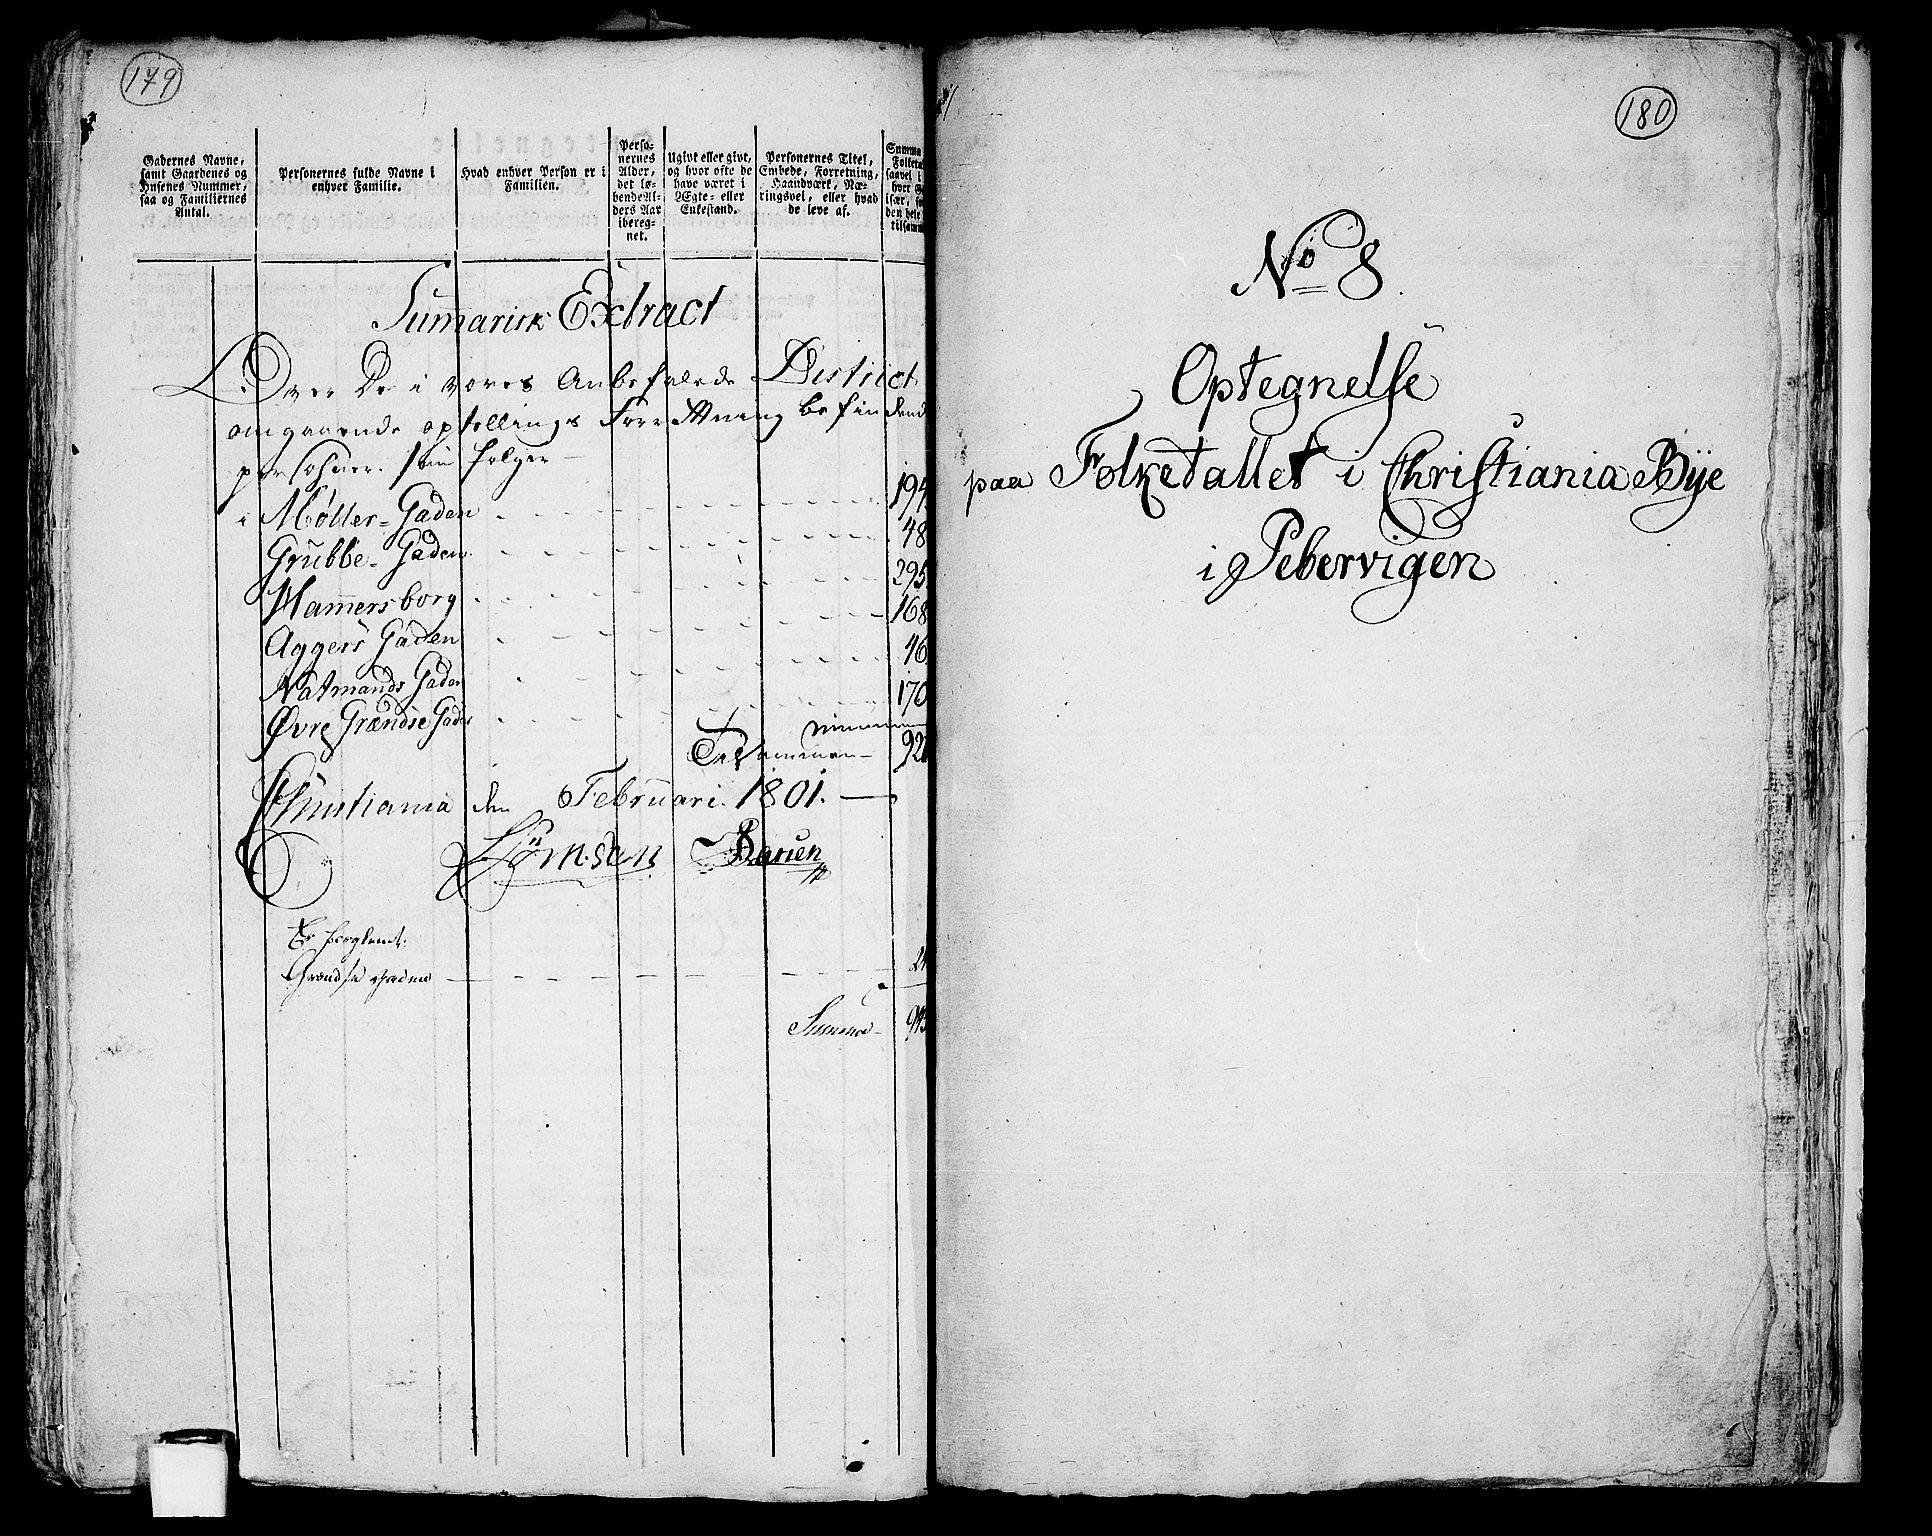 179
Gadernes Navne,
samt Gaardenes og
Husenes Nummer,
saa og Familiernes
Antal.
Personernes fulde Navne i
enhver Familie.
Hvad enhver Person er i
Familien.
Perso-
nernes
Alder,
det lø-
bende Al-
ders Aar
iberegnet.
Ugivt eller givt,
og hvor ofte de
have været i
Ægte- eller
Enkestand.
Personernes Titel,
Embede, Forretning,
Haandværk, Næ-
ringsvei, eller hvad
de leve af.
Summa
Folketal
saavel i
hver
især,
den hele
tilsamm
Sumarisk Extract
Over De i vores Anbefalede District
omgaaende optellings Forrettning befindend
persohner som følger
i Møller-Gaden - - - 194
Grubbe-Gaden - - - 48
Hamersborg - - - 295
Aggers Gaden - - - 168
Natmands Gaden - - - 46
Øvre Grændse Gade - - - 170
Tilsammen - 921
Christiania den Februari. 1801.
Er forglemt:
Grændse Gaden - - - 24
Summa - 945
180
No 8.
Optegnelse
paa Folketallet i Christiania Bye
i Pebervigen